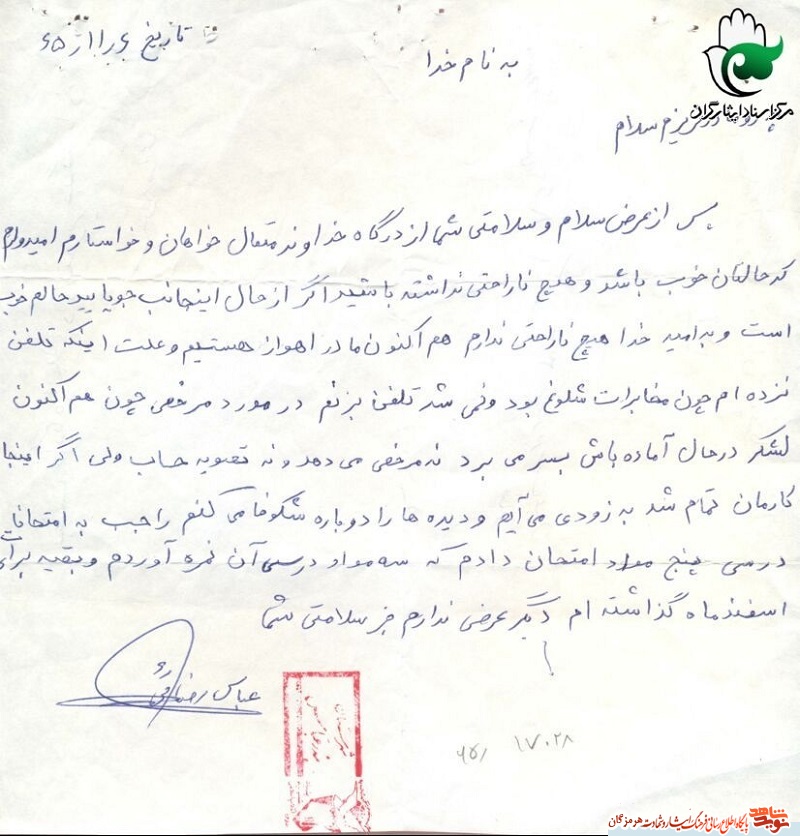 تاریخ
به نام خدا
مرکز اسناد ایثارگران
سلام
پس از عرض سلام و سلامتی شما از درگاه خداوند متعال خواهان و خواستارم امیدوارم
که حالتان خوب باشد و هیچ ناراحتی نداشته باشید اگر از حال اینجانب جویا باشید حالم خوب
است و به امید خدا هیچ ناراحتی ندارم هم اکنون ما در اهواز هستیم و علت اینکه تلفن
نزده ام چون مخابرات شلوغ بود و نمی شد تلفن بزنم در مورد مرخصی چون هم اکنون
لشکر در حال آماده باش بسر می برد نه مرخصی می دهد و نه تصویه حساب ولی اگر اینجا
کارمان تمام شد به زودی می آیم و دیده ها را دوباره شکوفا می کنم راجب به امتحانات
درسی پنج مواد امتحان دادم که سه مواد درسی آن نمره آوردم و بقیه برای
اسفندماه گذاشته ام دیگر عرضی ندارم جز سلامتی شما
عباس
۱۷۰۲۸
پایگاه اطلاع رسانی فرهنگ ایثار و شهادت هرمزگان